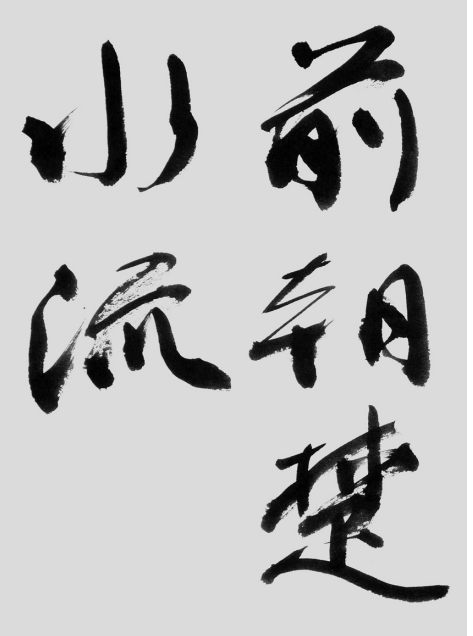 前朝楚
水流